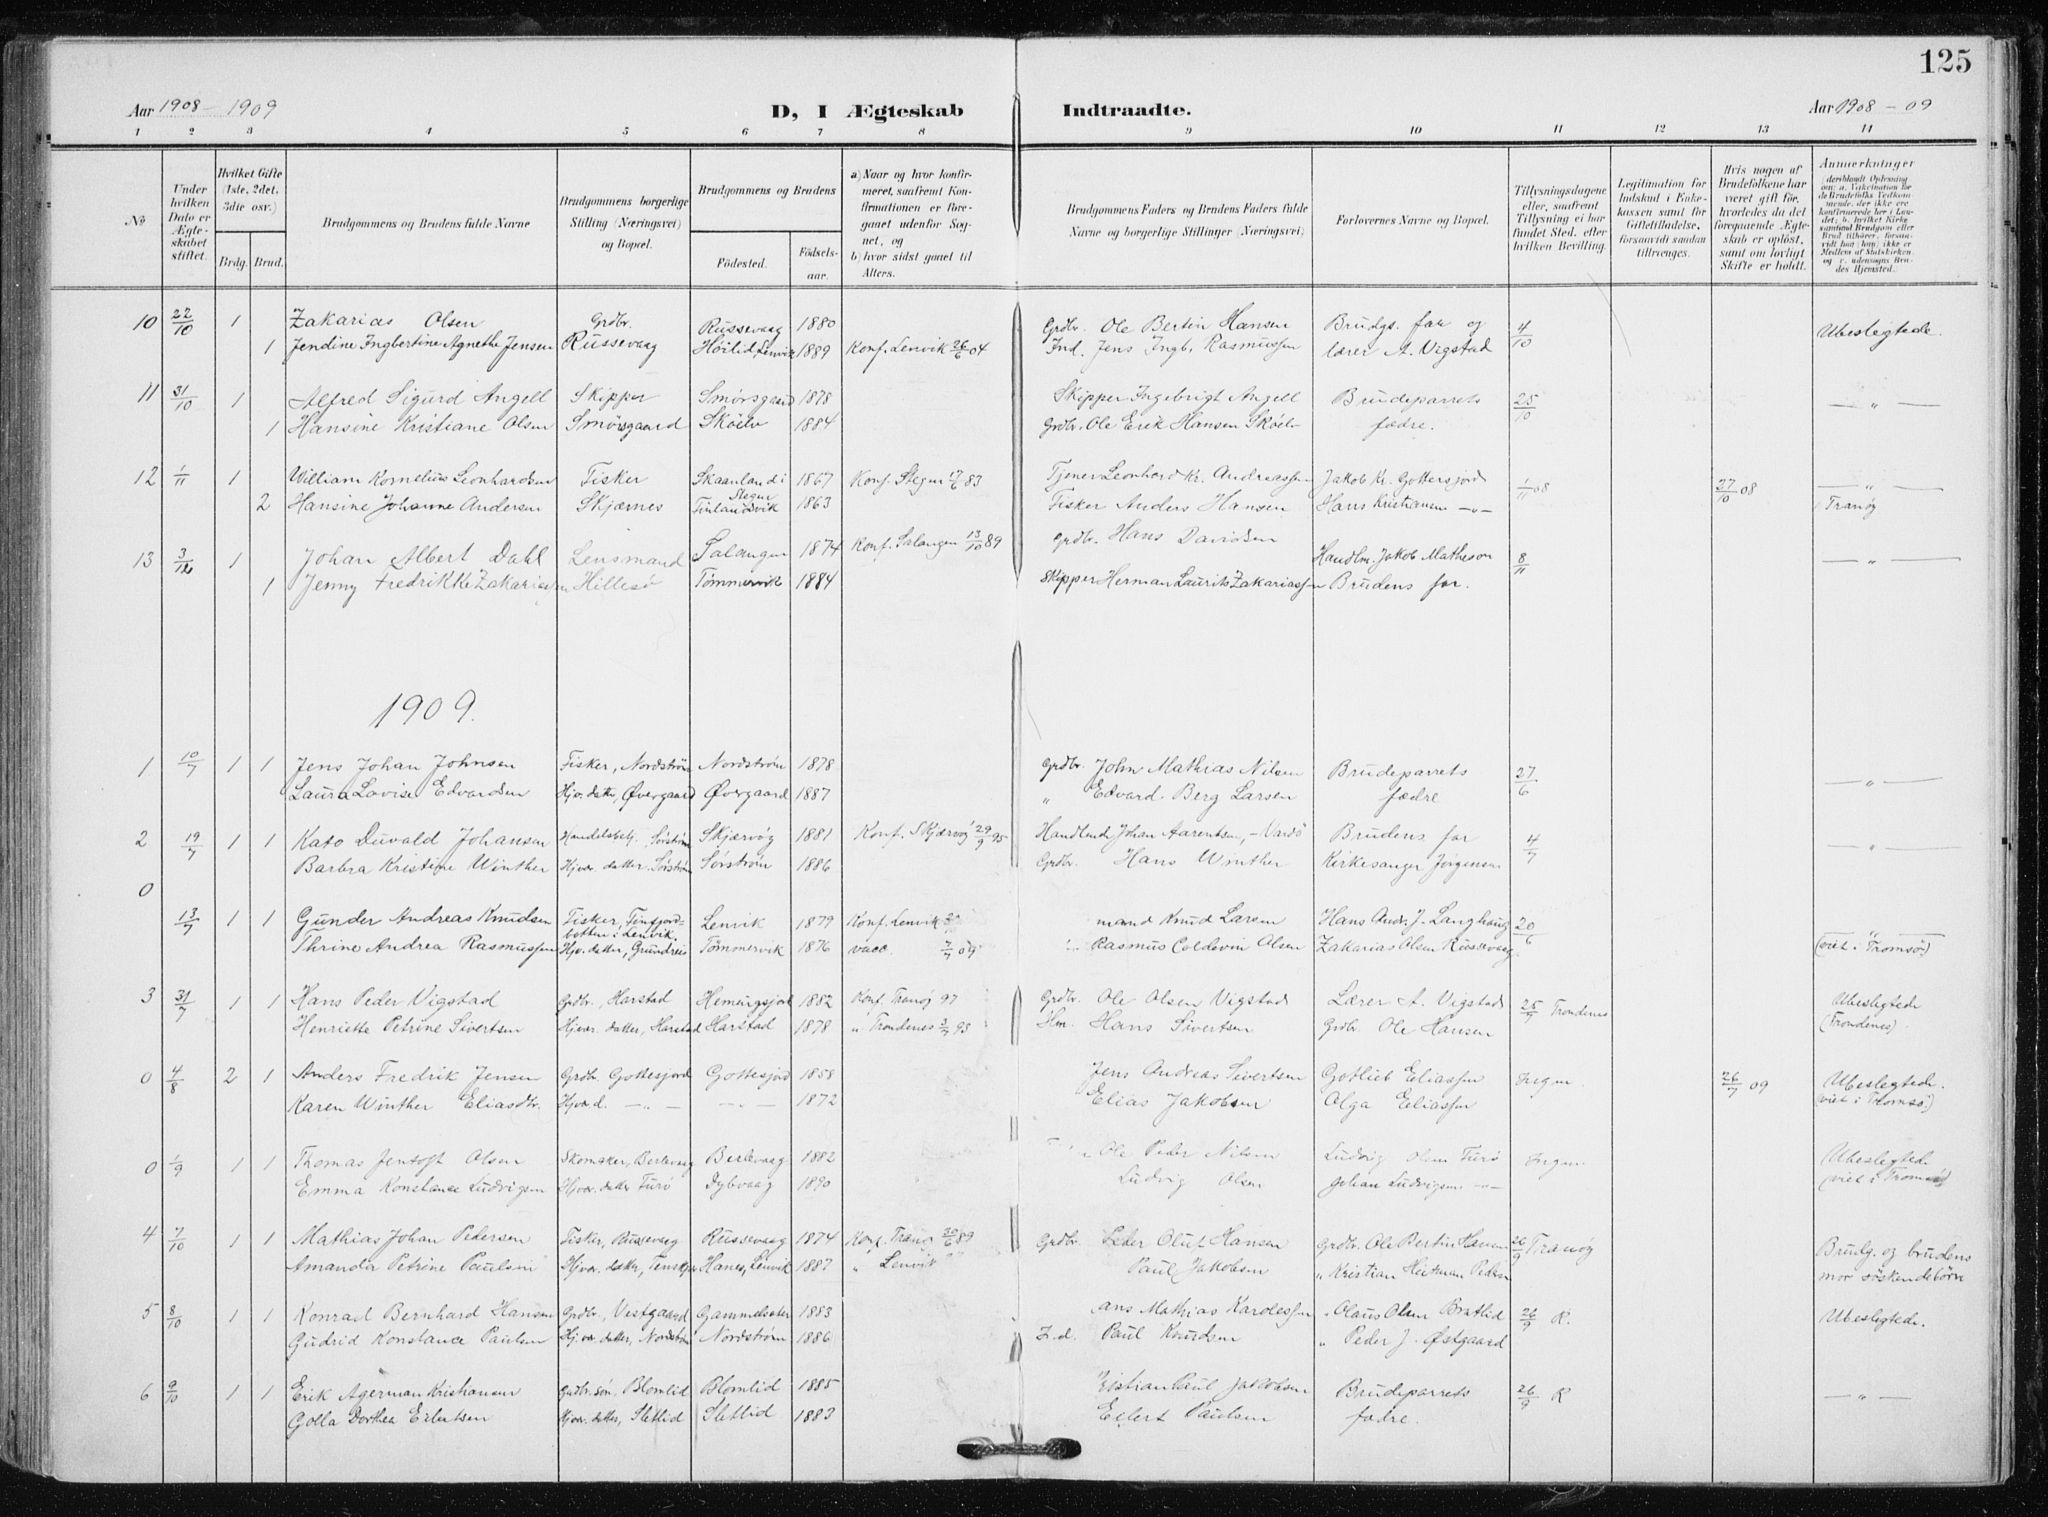 125
Aar 1908 - 1909 D, I Ægteskab Indtraadte. Aar 1908 - 09
1 2 3 4 5 6 7 8 9 10 11 12 13 14
No
Under hvilken Dato er Ægteskabet stiftet.
Hvilket Gifte (1ste, 2det, 3die osv.)
Brdg. Brud.
Brudgommens og Brudens fulde Navne
Brudgommens borgerlige Stilling (Næringsvei) og Bopæl.
Brudgommens og Brudens
Fødested. Fødselsaar.
a) Naar og hvor konfirmeret, saafremt Konfirmationen er foregaaet udenfor Sognet, og
b) hvor sidst gaaet til Alters.
Brudgommens Faders og Brudens Faders fulde Navne og borgerlige Stillinger (Næringsvei)
Forlovernes Navne og Bopæl.
Tillysningsdagene eller, saafremt Tillysning ei har fundet Sted, efter hvilken Bevilling.
Legitimation for Indskud i Enkekassen samt for Giftetilladelse, forsaavidt saadan tiltrænges.
Hvis nogen af Brudefolkene har været gift før, hvorledes da det foregaaende Ægteskab er opløst, samt om lovligt Skifte er holdt.
Anmerkninger
10 22/10 1 Zakarias Olsen Grdbr. Russevaag 1880 Grdbr. Ole Bertin Hansen Brudgs. far og 4/10 Ubeslegtede.
1 Jendine Ingbertine Agnethe Jensen Russevaag Høilid, Lenvik 1889 Konf. Lenvik 26/6 04 Ind. Jens Ingb. Rasmussen lærer A. Vigstad
11 31/10 1 Alfred Sigurd Angell Skipper Smørsgaard 1878 Skipper Ingebrigt Angell Brudeparrets 25/10 — " —
1 Hansine Kristiane Olsen Smørsgaard Skøelv 1884 Grdbr. Ole Erik Hansen Skøelv fædre.
12 1/11 1 William Kornelius Leonhardsen Fisker Skaanland i Stegen 1867 Konf. Stegen 17/6 83 Tjener Leonhard Kr. Andreassen Jakob Kr. Gottesjord 1/11 08 27/10 08 — " —
2 Hansine Johanne Andersen Skjærnes Finlandsvik 1863 Fisker Anders Hansen Hans Kristiansen -"- Tranøy
13 3/12 1 Johan Albert Dahl Lensmand Salangen 1874 Konf. Salangen 13/10 89 Grdbr. Hans Davidsen Handlm. Jakob Matheson 8/11 — " —
1 Jenny Fredrikke Zakariassen Hillesø Tømmervik 1884 Skipper Herman Laurits Zakariassen Brudens far.
1909.
1 10/7 1 1 Jens Johan Johnsen Fisker, Nordstrøm Nordstrøm 1878 Grdbr. John Mathias Nilsen Brudeparrets 27/6 — " —
Laura Lovise Edvardsen Hjv. datter, Øvergaard Øvergaard 1887 " Edvard Berg Larsen fædre
2 19/7 1 1 Kato Duvald Johansen Handelsbetj. Sørstrøm Skjærvøy 1881 Konf. Skjærvøy 29/9 95 Handlend. Johan Aarentsen, - Vardø Brudens far 4/7 — " —
Barbra Kristine Winther Hjvær. datter. Sørstrøm Sørstrøm 1886 Grdbr. Hans Winther Kirkesanger Jørgensen
0
13/7 1 1 Gunder Andreas Knudsen Fisker, Finfjordbotten i Lenvik Lenvik 1879 Konf. Lenvik mand Knud Larsen Hans Andr. J. Langhaug 20/6 "
Thrine Andrea Rasmussen Hjv. datter, Grundreis Tømmervik 1876 vacc. Rasmus Coldevin Olsen Zakarias Olsen Russevaag (viet i Tromsø)
3 31/7 1 1 Hans Peder Vigstad Grdbr., Harstad Hemingsjord 1882 Konf. Tranøy 97 Grdbr. Ole Olsen Vigstad Lærer A. Vigstad 25/7 Trondenes Ubeslegtede
Henriette Petrine Sivertsen Hjvær. datter, Harstad Harstad 1878 " Trondenes 3/7 93 Hm. Hans Sivertsen Grdbr. Ole Hansen (Trondenes)
0 4/8 2 1 Anders Fredrik Jensen Grdbr. Gottesjord Gottesjord 1858 Jens Andreas Sivertsen Gotlieb Eliassen Ingen 26/7 09 Ubeslegtede.
Karen Winther Eliasdtr. Hjv. d. -"- -"- 1872 Elias Jakobsen Olga Eliassen (viet i Tromsø)
0 1/9 1 1 Thomas Jentoft Olsen Skomaker, Berlevaag Berlevaag 1882 Ole Peder Nilsen Ludvig Olsen Furø Ingen Ubeslegtede
Emma Konstance Ludvigsen Hjvær. datter Furø Dybvaag 1890 Ludvig Olsen Johan Ludvigsen -"- (viet i Tromsø)
4 7/10 1 1 Mathias Johan Pedersen Fisker, Russevaag Russevaag 1874 Konf. Tranøy 30/6 89 Grdbr. Peder Oluf Hansen Grdbr. Ole Bertin Hansen 26/9 Tranøy Brudg. og brudens
Amanda Petrine Paulsen Hjvær. datter, Hanes, Lenvik 1887 " Lenvik Paul Jakobsen " Kristian Heitman Pedersen mor søskendebørn
5 8/10 1 1 Konrad Bernhard Hansen Grdbr, Vestgaard Gammelseter 1883 ans Mathias Karolessen " Olaus Olsen Bratlid 26/9 R. Ubeslegtede.
Gudrid Konstance Paulsen Hjvær datter, Nordstrøm Nordstrøm 1886 Paul Knudsen " Peder J. Østgaard
6 9/10 1 1 Erik Agerman Kristiansen Grdbr. søn, Blomlid Blomlid 1885 Kristian Paul Jakobsen Brudeparrets 26/9 R — " —
Golla Dorthea Eilertsen Hjvær. datter, Slettlid Slettlid 1883 Eilert Paulsen fædre.